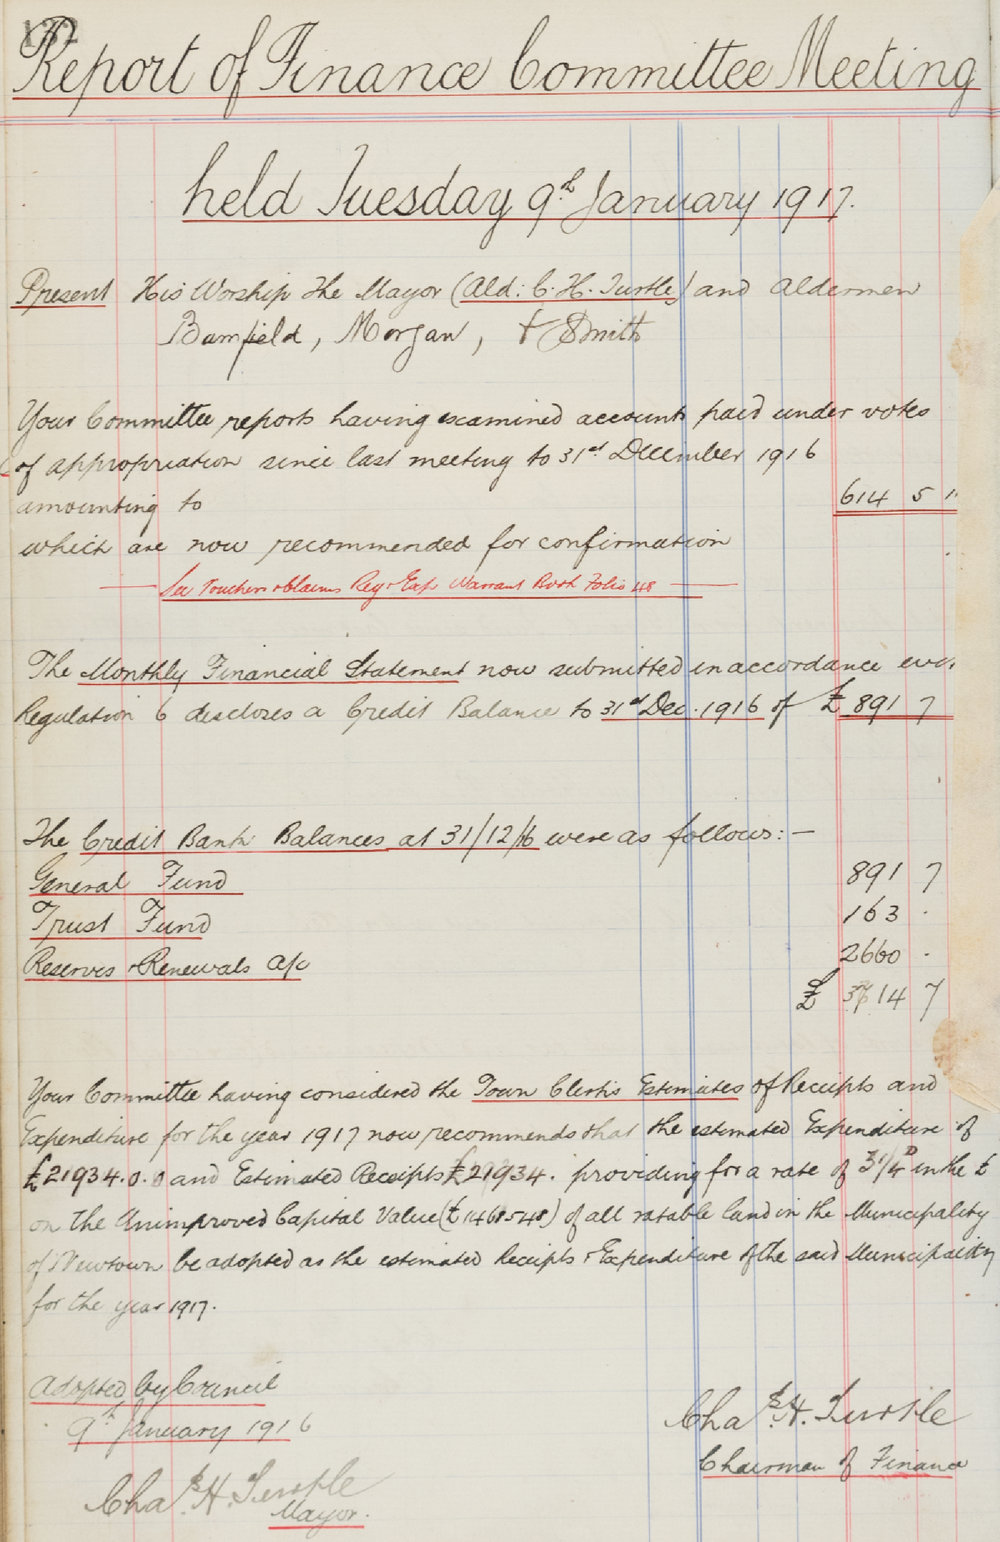 132
Report of Finance Committee Meeting
held Tuesday 9th January 1917.
Present His Worship the Mayor (Ald: C. H. Turtle) and Aldermen
Bamfield, Morgan, & Smith
Your Committee reports having examined accounts paid under votes
of appropriation since last meeting to 31st December 1916
amounting to 614 5 11
which are now recommended for confirmation
See Vouchers & Claims Reg & Exp Warrant Book Folio 48
The Monthly Financial Statement now submitted in accordance
Regulation 6 discloses a Credit Balance to 31st Dec. 1916 of £ 891 7
The Credit Bank Balances at 31/12/16 were as follows:-
General Fund 891 7
Trust Fund 163 .
Reserves & Renewals A/c 2660 .
£ 3714 7
Your Committee having considered the Town Clerk's Estimates of Receipts and
Expenditure for the year 1917 now recommends that the estimated Expenditure of
£21934.0.0 and Estimated Receipts £21934. providing for a rate of 3 1/4D in the £
on the Unimproved Capital Value (£1468548) of all ratable land in the Municipality
of Newtown be adopted as the estimated Receipts & Expenditure of the said Municipality
for the year 1917.
Adopted by Council
9th January 1916
Chas. H. Turtle
Mayor.
Chas. H. Turtle
Chairman of Finance